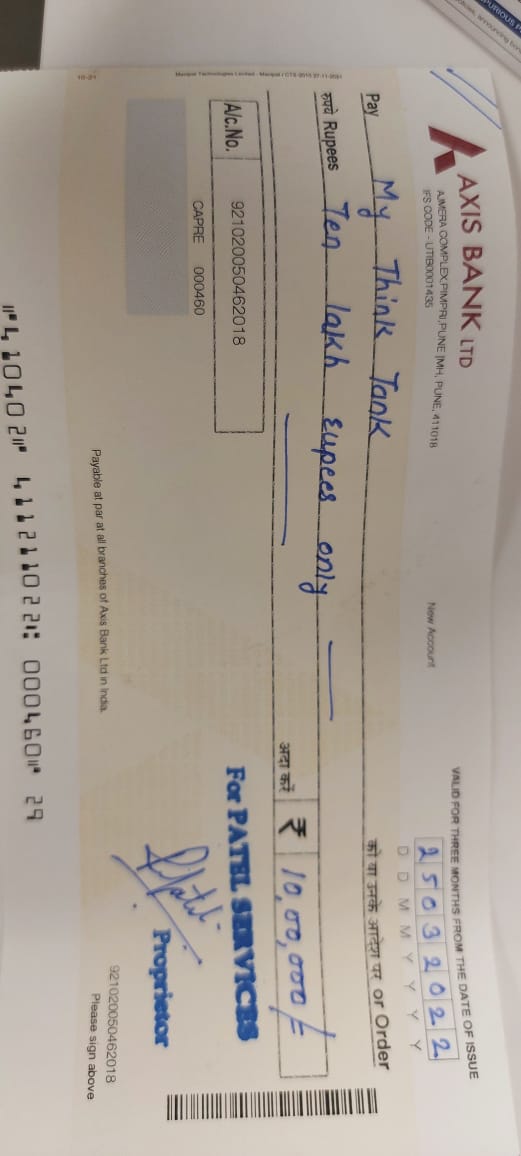 AXIS BANK LTD
AJMERA COMPLEX,PIMPRI,PUNE [MH, PUNE, 411018
IFS CODE - UTIB0001435
New Account
VALID FOR THREE MONTHS FROM THE DATE OF ISSUE
25032022
D D M M Y Y Y Y
Pay My Think Tank को या उनके आदेश पर or Order
रुपये Rupees Ten lakh rupees only
अदा करें ₹ 10,00,000/-
A/c.No. 921020050462018
CAPRE 000460
For PATEL SERVICES
Proprietor
921020050462018
Please sign above
Payable at par at all branches of Axis Bank Ltd in India.
10-21
⑈4110402⑈ 411211022⑆ 000460⑈ 29